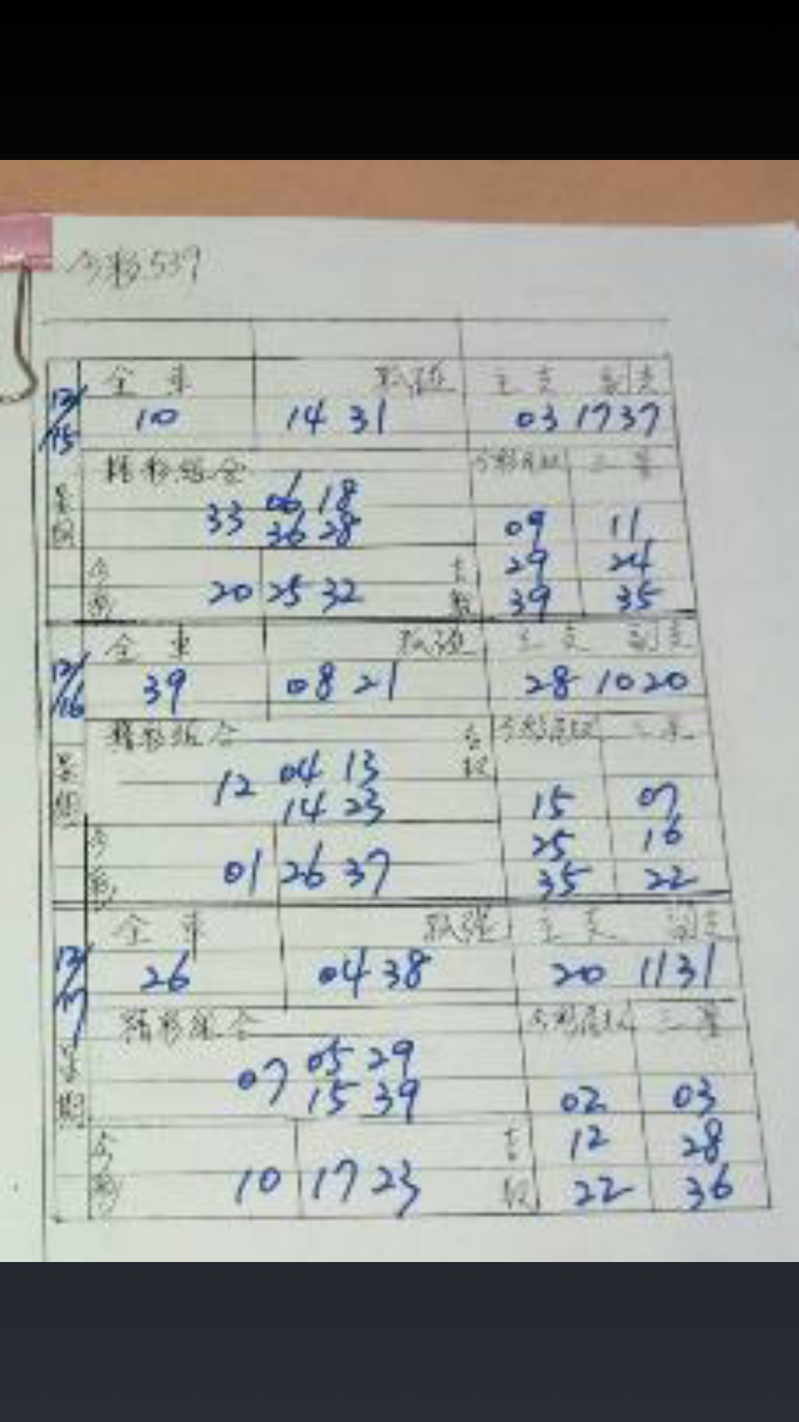 今彩539
全車 孤張 主支 副支
12/15 10 14 31 03 17 37
精彩組合 今彩尾娱 三星
06 18
33 36 28 09 11
星期 29 24
今彩 20 25 32 39 35
全車 孤張 主支 副支
12/16 39 08 21 28 10 20
精彩組合 三星
04 13
12 14 23 15 07
星期 25 16
今彩 01 26 37 35 22
全車 孤張 主支 副支
12/17 26 04 38 20 11 31
精彩組合 三星
05 29
07 15 39 02 03
星期 12 28
今彩 10 17 23 22 36